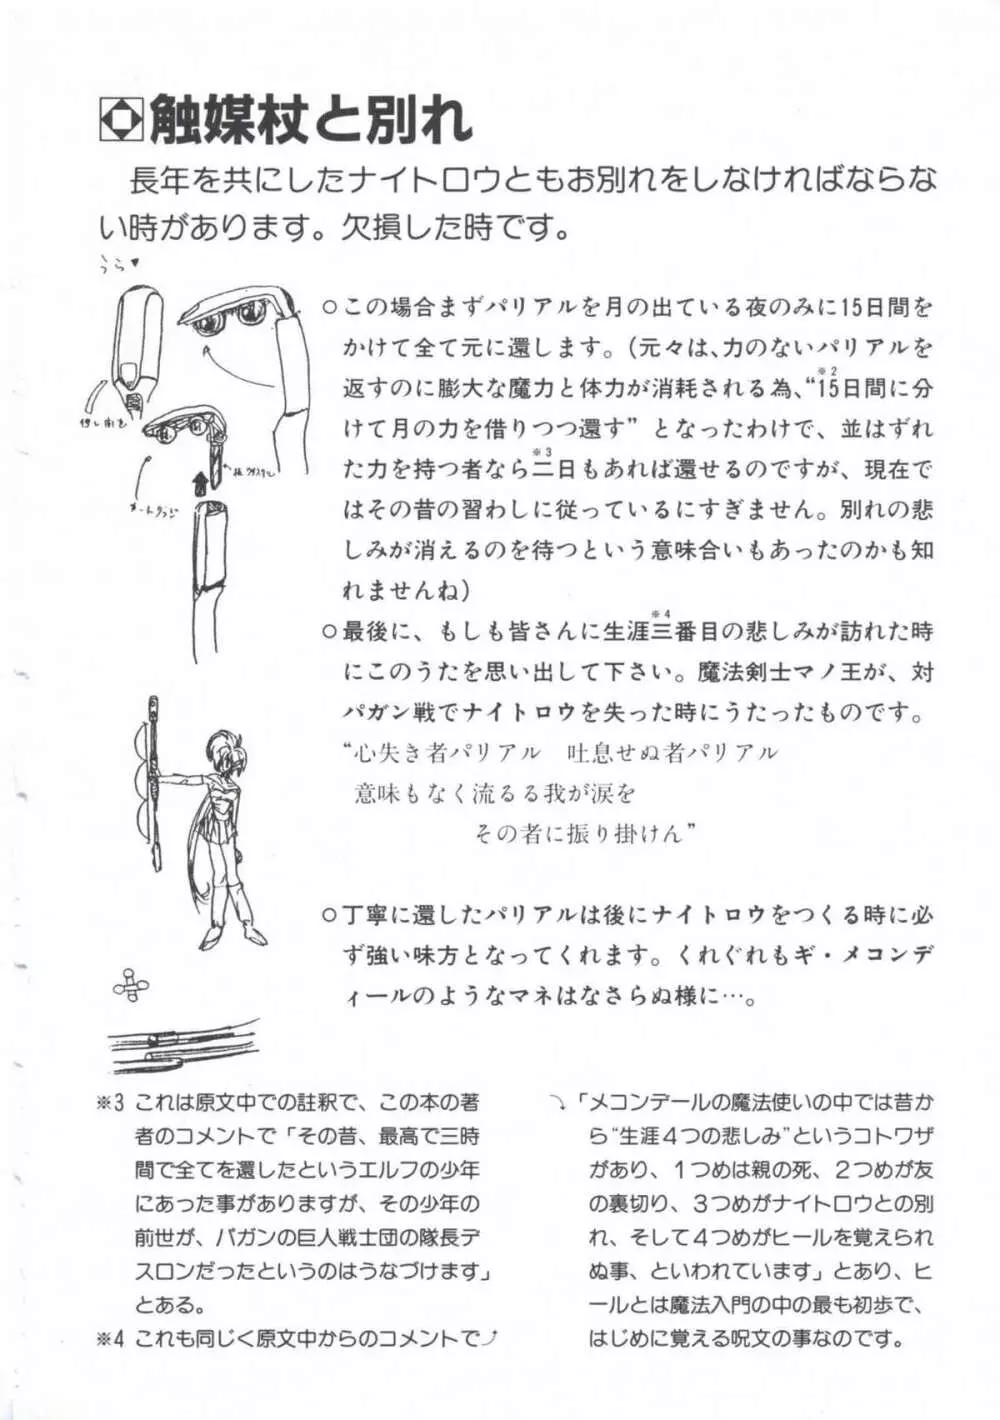 触媒杖と別れ
長年を共にしたナイトロウともお別れをしなければならな
い時があります。欠損した時です。
うら♥
○この場合まずパリアルを月の出ている夜のみに15日間を
かけて全て元に還します。(元々は、力のないパリアルを
返すのに膨大な魔力と体力が消耗される為、“15日間に分
※2
けて月の力を借りつつ還す”となったわけで、並はずれ
た力を持つ者なら二日もあれば還せるのですが、現在で
※3
はその昔の習わしに従っているにすぎません。別れの悲
しみが消えるのを待つという意味合いもあったのかも知
れませんね)
○最後に、もしも皆さんに生涯三番目の悲しみが訪れた時
※4
にこのうたを思い出して下さい。魔法剣士マノ王が、対
パガン戦でナイトロウを失った時にうたったものです。
“心失き者パリアル　吐息せぬ者パリアル
意味もなく流るる我が涙を
その者に振り掛けん”
○丁寧に還したパリアルは後にナイトロウをつくる時に必
ず強い味方となってくれます。くれぐれもギ・メコンデ
ィールのようなマネはなさらぬ様に…。
※3 これは原文中での註釈で、この本の著
者のコメントで「その昔、最高で三時
間で全てを還したというエルフの少年
にあった事がありますが、その少年の
前世が、バガンの巨人戦士団の隊長デ
スロンだったというのはうなづけます」
とある。
※4 これも同じく原文中からのコメントで
「メコンデールの魔法使いの中では昔か
ら“生涯４つの悲しみ”というコトワザ
があり、１つめは親の死、２つめが友
の裏切り、３つめがナイトロウとの別
れ、そして４つめがヒールを覚えられ
ぬ事、といわれています」とあり、ヒ
ールとは魔法入門の中の最も初歩で、
はじめに覚える呪文の事なのです。